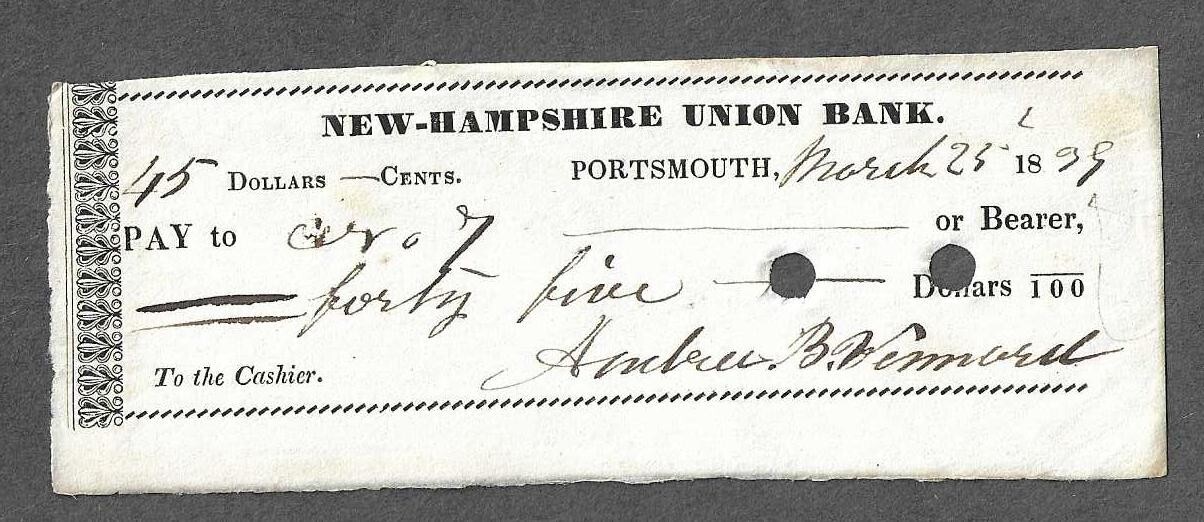 NEW-HAMPSHIRE UNION BANK.
45 DOLLARS — CENTS. PORTSMOUTH, March 25 1839
PAY to or Bearer,
forty five Dollars 100
Andrew B. Vennard
To the Cashier.